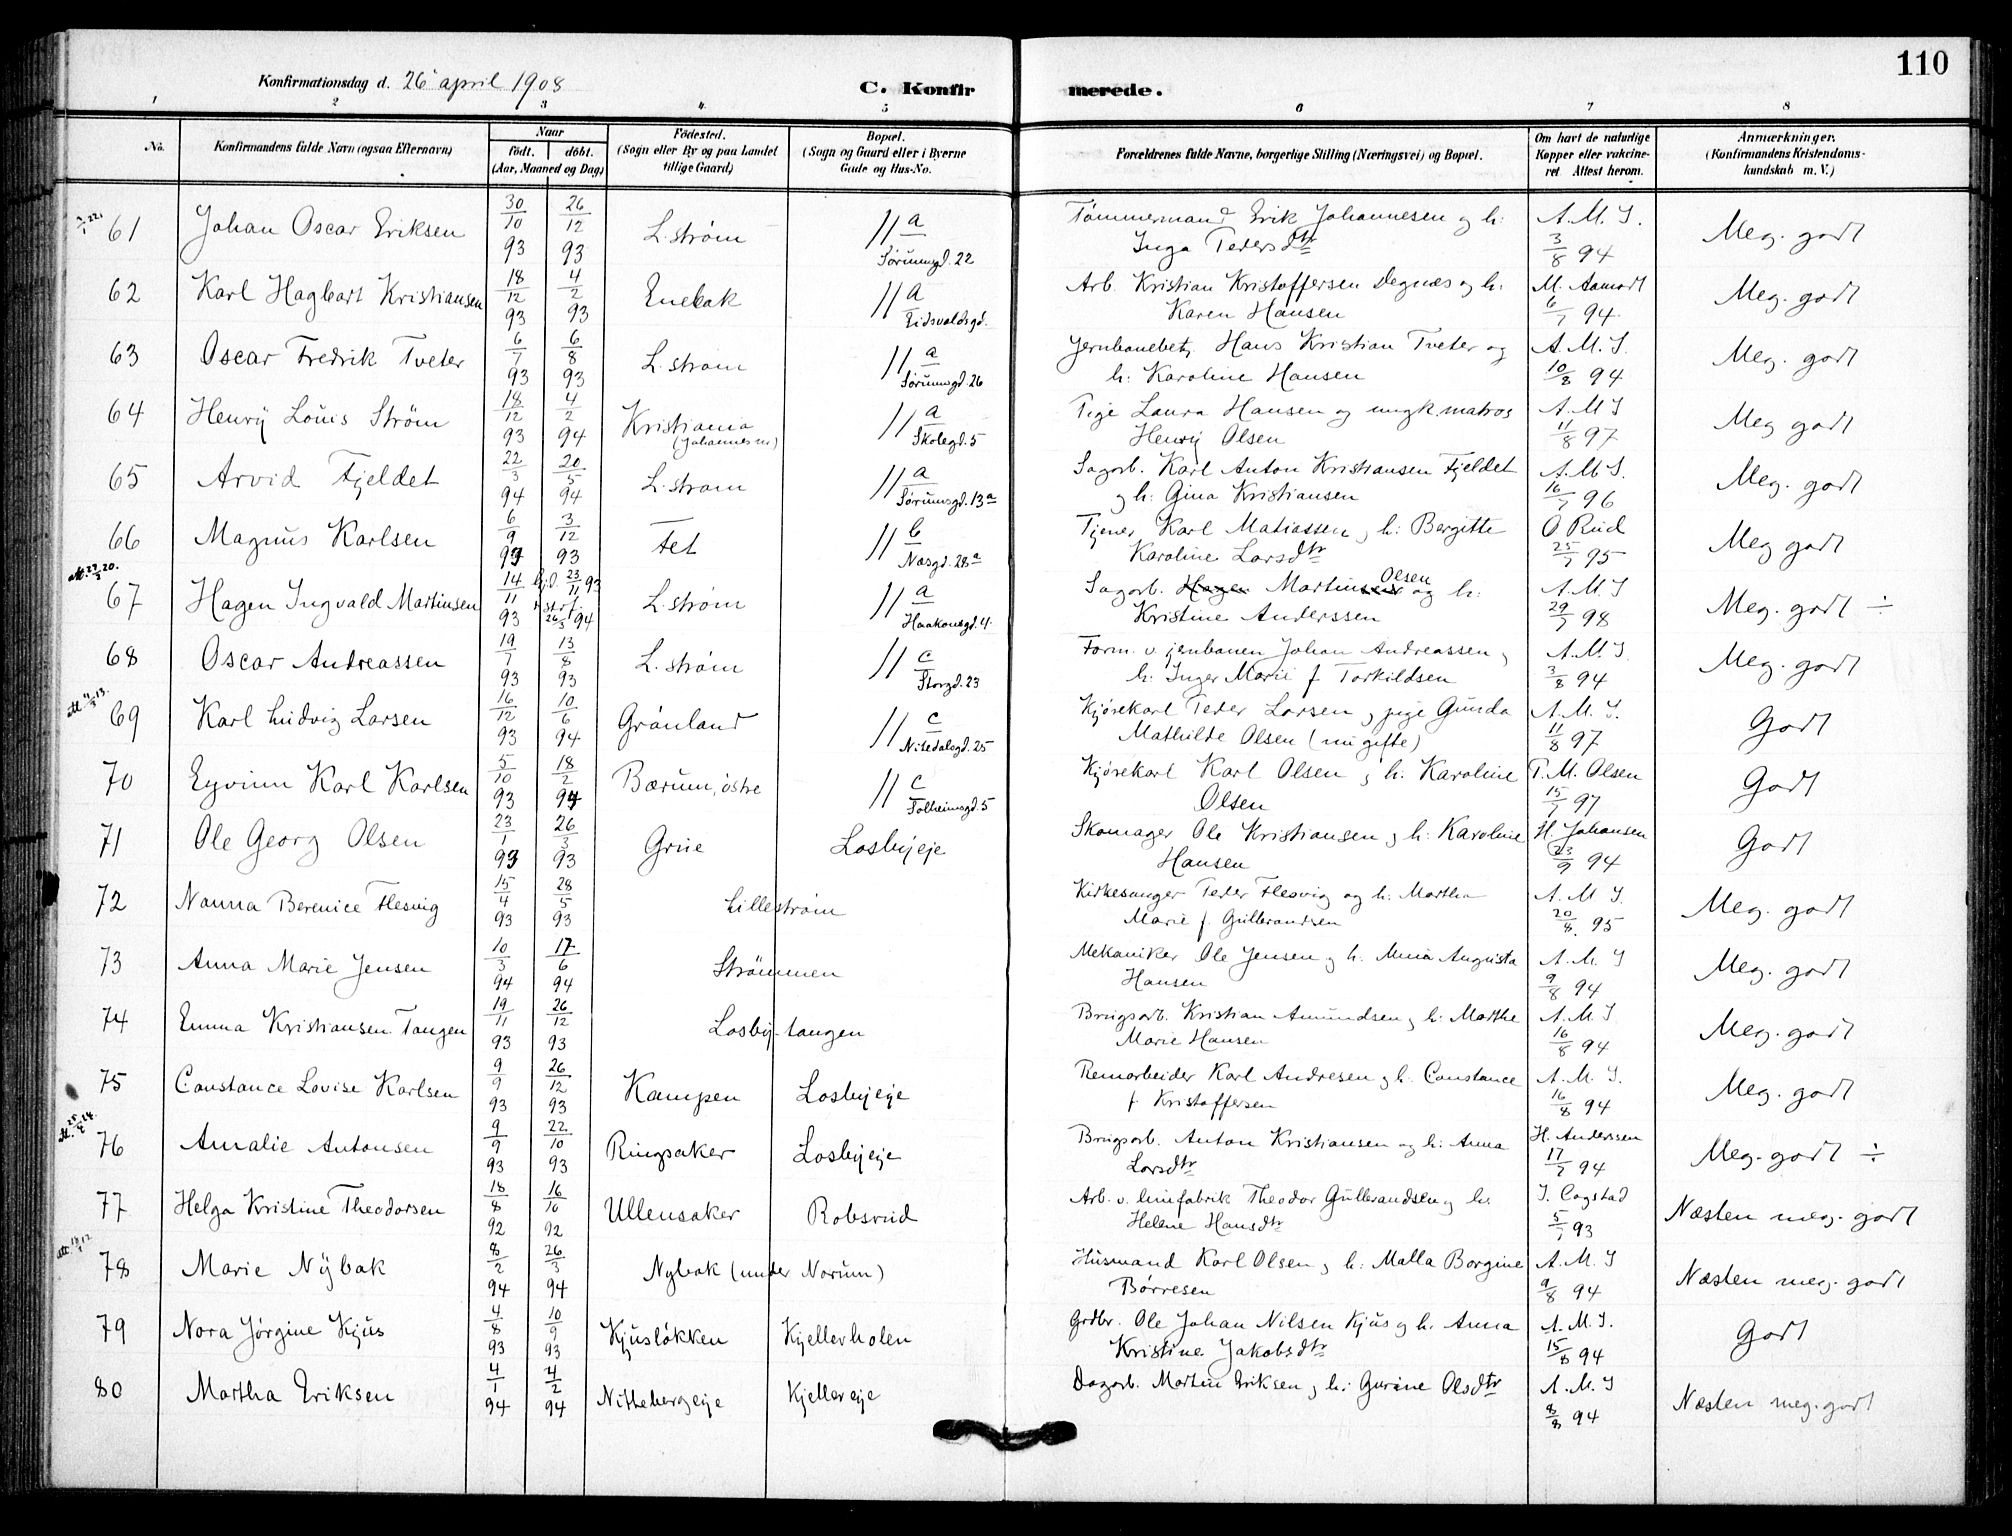 110
Konfirmationsdag d. 26 april 1908
C. Konfirmerede.
1 2 3 4 5 6 7 8
No.
Konfirmandens fulde Navn (ogsaa Efternavn)
Naar
født. døbt.
(Aar, Maaned og Dag)
Fødested.
(Sogn eller By og paa Landet
tillige Gaard)
Bopæl.
(Sogn og Gaard eller i Byerne
Gade og Hus-No.
Forældrenes fulde Navne, borgerlige Stilling (Næringsvei) og Bopæl.
Om havt de naturlige
Kopper eller vakcine-
ret Attest herom.
Anmærkninger.
(Konfirmandens Kristendoms-
kundskab m. V.)
61 Johan Oscar Eriksen 30/10 93 26/12 93 L.strøm // a Sørumsgd. 22
Tømmermand Erik Johannesen og h:
Inga Pedersdtr
A. M. S. 3/8 94 Meg. godt
62 Karl Hagbart Kristiansen 18/12 93 4/2 93 Enebak // a Eidsvoldsgd.
Arb. Kristian Kristoffersen Degnæs og h:
Karen Hansen
M. Aamodt 6/7 94 Meg. godt
63 Oscar Fredrik Tveter 6/7 93 6/8 93 L.strøm // a Sørumsgd. 26
Jernbanebetj. Hans Kristian Tveter og
h: Karoline Hansen
A. M. S. 10/8 94 Meg. godt
64 Henry Louis Strøm 18/12 93 4/2 94 Kristiania (Johannes m) // a Skolegd. 5
Pige Laura Hansen og ungk. matros
Henry Olsen
A. M S 11/8 97 Meg godt
65 Arvid Fjeldet 22/3 94 20/5 94 L.strøm // a Sørumsgd. 13a
Sagarb. Karl Anton Kristiansen Fjeldet
og h: Gina Kristiansen
A. M. S. 16/7 96 Meg. godt
66 Magnus Karlsen 6/9 93 3/12 93 Fet // b Næsgd. 28a
Tjener Karl Matiassen, h: Bergitte
Karoline Larsdtr
O Rud 25/7 95 Meg godt
att. 27/3 20.
67 Hagen Ingvald Martinsen 14/11 93 hjd. 23/11 93 stadf. 26/3 94 L.strøm // a Haakonsgd. 4.
Sagarb. Hagen Martinsen Olsen og h:
Kristine Anderssen
A. M. S 29/7 98 Meg. godt ÷
68 Oscar Andreassen 19/7 93 13/8 93 L.strøm // c Storgd. 23
Form. v. jernbanen Johan Andreassen,
h: Inger Marie f Torkildsen
A. M. S 3/8 94 Meg. godt
69 Karl Ludvig Larsen 16/12 93 10/6 94 Grønland // c Nitedalsgd. 25
Kjørekarl Peder Larsen, pige Gunda
Mathilde Olsen (nu gifte)
A. M. S. 11/8 97 Godt
70 Eyvinn Karl Karlsen 5/10 93 18/2 94 Bærum, østre // c Solheimsgd. 5
Kjørekarl Karl Olsen, h. Karoline
Olsen
P. M. Olsen 15/7 97 Godt
71 Ole Georg Olsen 23/1 93 26/3 93 Grue Losbyeje
Skomager Ole Kristiansen, h: Karoline
Hansen
H. Johansen 23/9 94 Godt
72 Nanna Berenice Flesvig 15/4 93 28/5 93 Lillestrøm
Kirkesanger Peder Flesvig og h. Martha
Marie f. Gulbrandsen
A. M S. 20/8. 95 Meg. godt
73 Anna Marie Jensen 10/3 94 17/6 94 Strømmen
Mekaniker Ole Jensen og h. Mina Augusta
Hansen
A. M. S 9/8 94 Meg. godt
74 Emma Kristiansen Tangen 19/11 93 26/12 93 Losby-tangen
Brugsarb. Kristian Amundsen, h: Marthe
Marie Hansen
A. M. S 16/8 94 Meg. godt
75 Constance Lovise Karlsen 9/9 93 26/12 93 Kampen Losbyeje
Remarbeider Karl Andresen og h. Constance
f Kristoffersen
A. M. S. 16/8 94 Meg. godt
76 Amalie Antonsen 9/9 93 22/10 93 Ringsaker Losbyeje
Brugsarb. Anton Kristiansen og h: Anna
Larsdtr
H. Anderssen 17/7 94 Meg. godt ÷
77 Helga Kristine Theodorsen 18/8 92 16/10 92 Ullensaker Robsrud
Arb. v. limfabrik Theodor Gulbrandsen, h.
Helene Hansdtr
J. Cogstad 5/7 93 Næsten meg. godt
78 Marie Nybak 8/2 94 26/3 94 Nybak (under Norum)
Husmand Karl Olsen, h: Malla Borgine
Børresen
A. M. S 9/8 94 Næsten meg. godt
79 Nora Jørgine Kjus 4/8 93 10/9 93 Kjusløkken Kjellerholen
Grdbr. Ole Johan Nilsen Kjus, h. Anna
Kristine Jakobsdtr
A. M. S. 15/8 94 Godt
80 Martha Eriksen 4/1 94 4/2 94 Nittebergeje Kjellereje
Dagarb. Martin Eriksen, h: Gurine Olsdtr
A. M. S 8/8 94 Næsten meg. godt